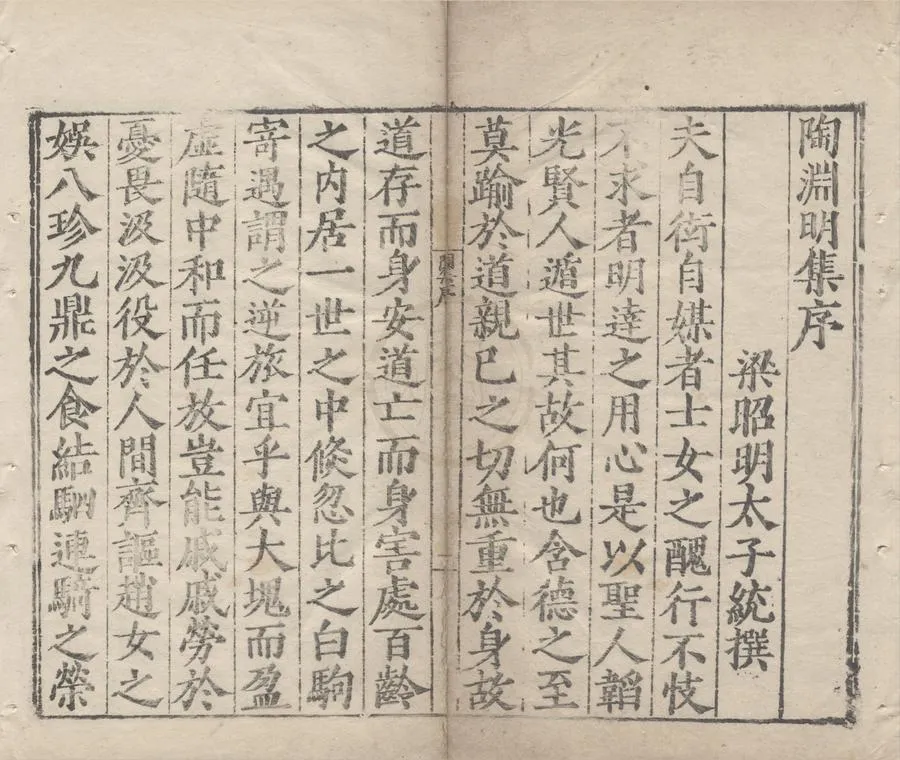 陶淵明集序
梁昭明太子統撰
夫自衒自媒者士女之醜行不忮
不求者明達之用心是以聖人韜
光賢人遁世其故何也含德之至
莫踰於道親己之切無重於身故
道存而身安道亡而身害處百齡
之内居一世之中倏忽比之白駒
寄遇謂之逆旅宜乎與大塊而盈
虛隨中和而任放豈能戚戚勞於
憂畏汲汲役於人間齊謳趙女之
娛八珍九鼎之食結駟連騎之榮